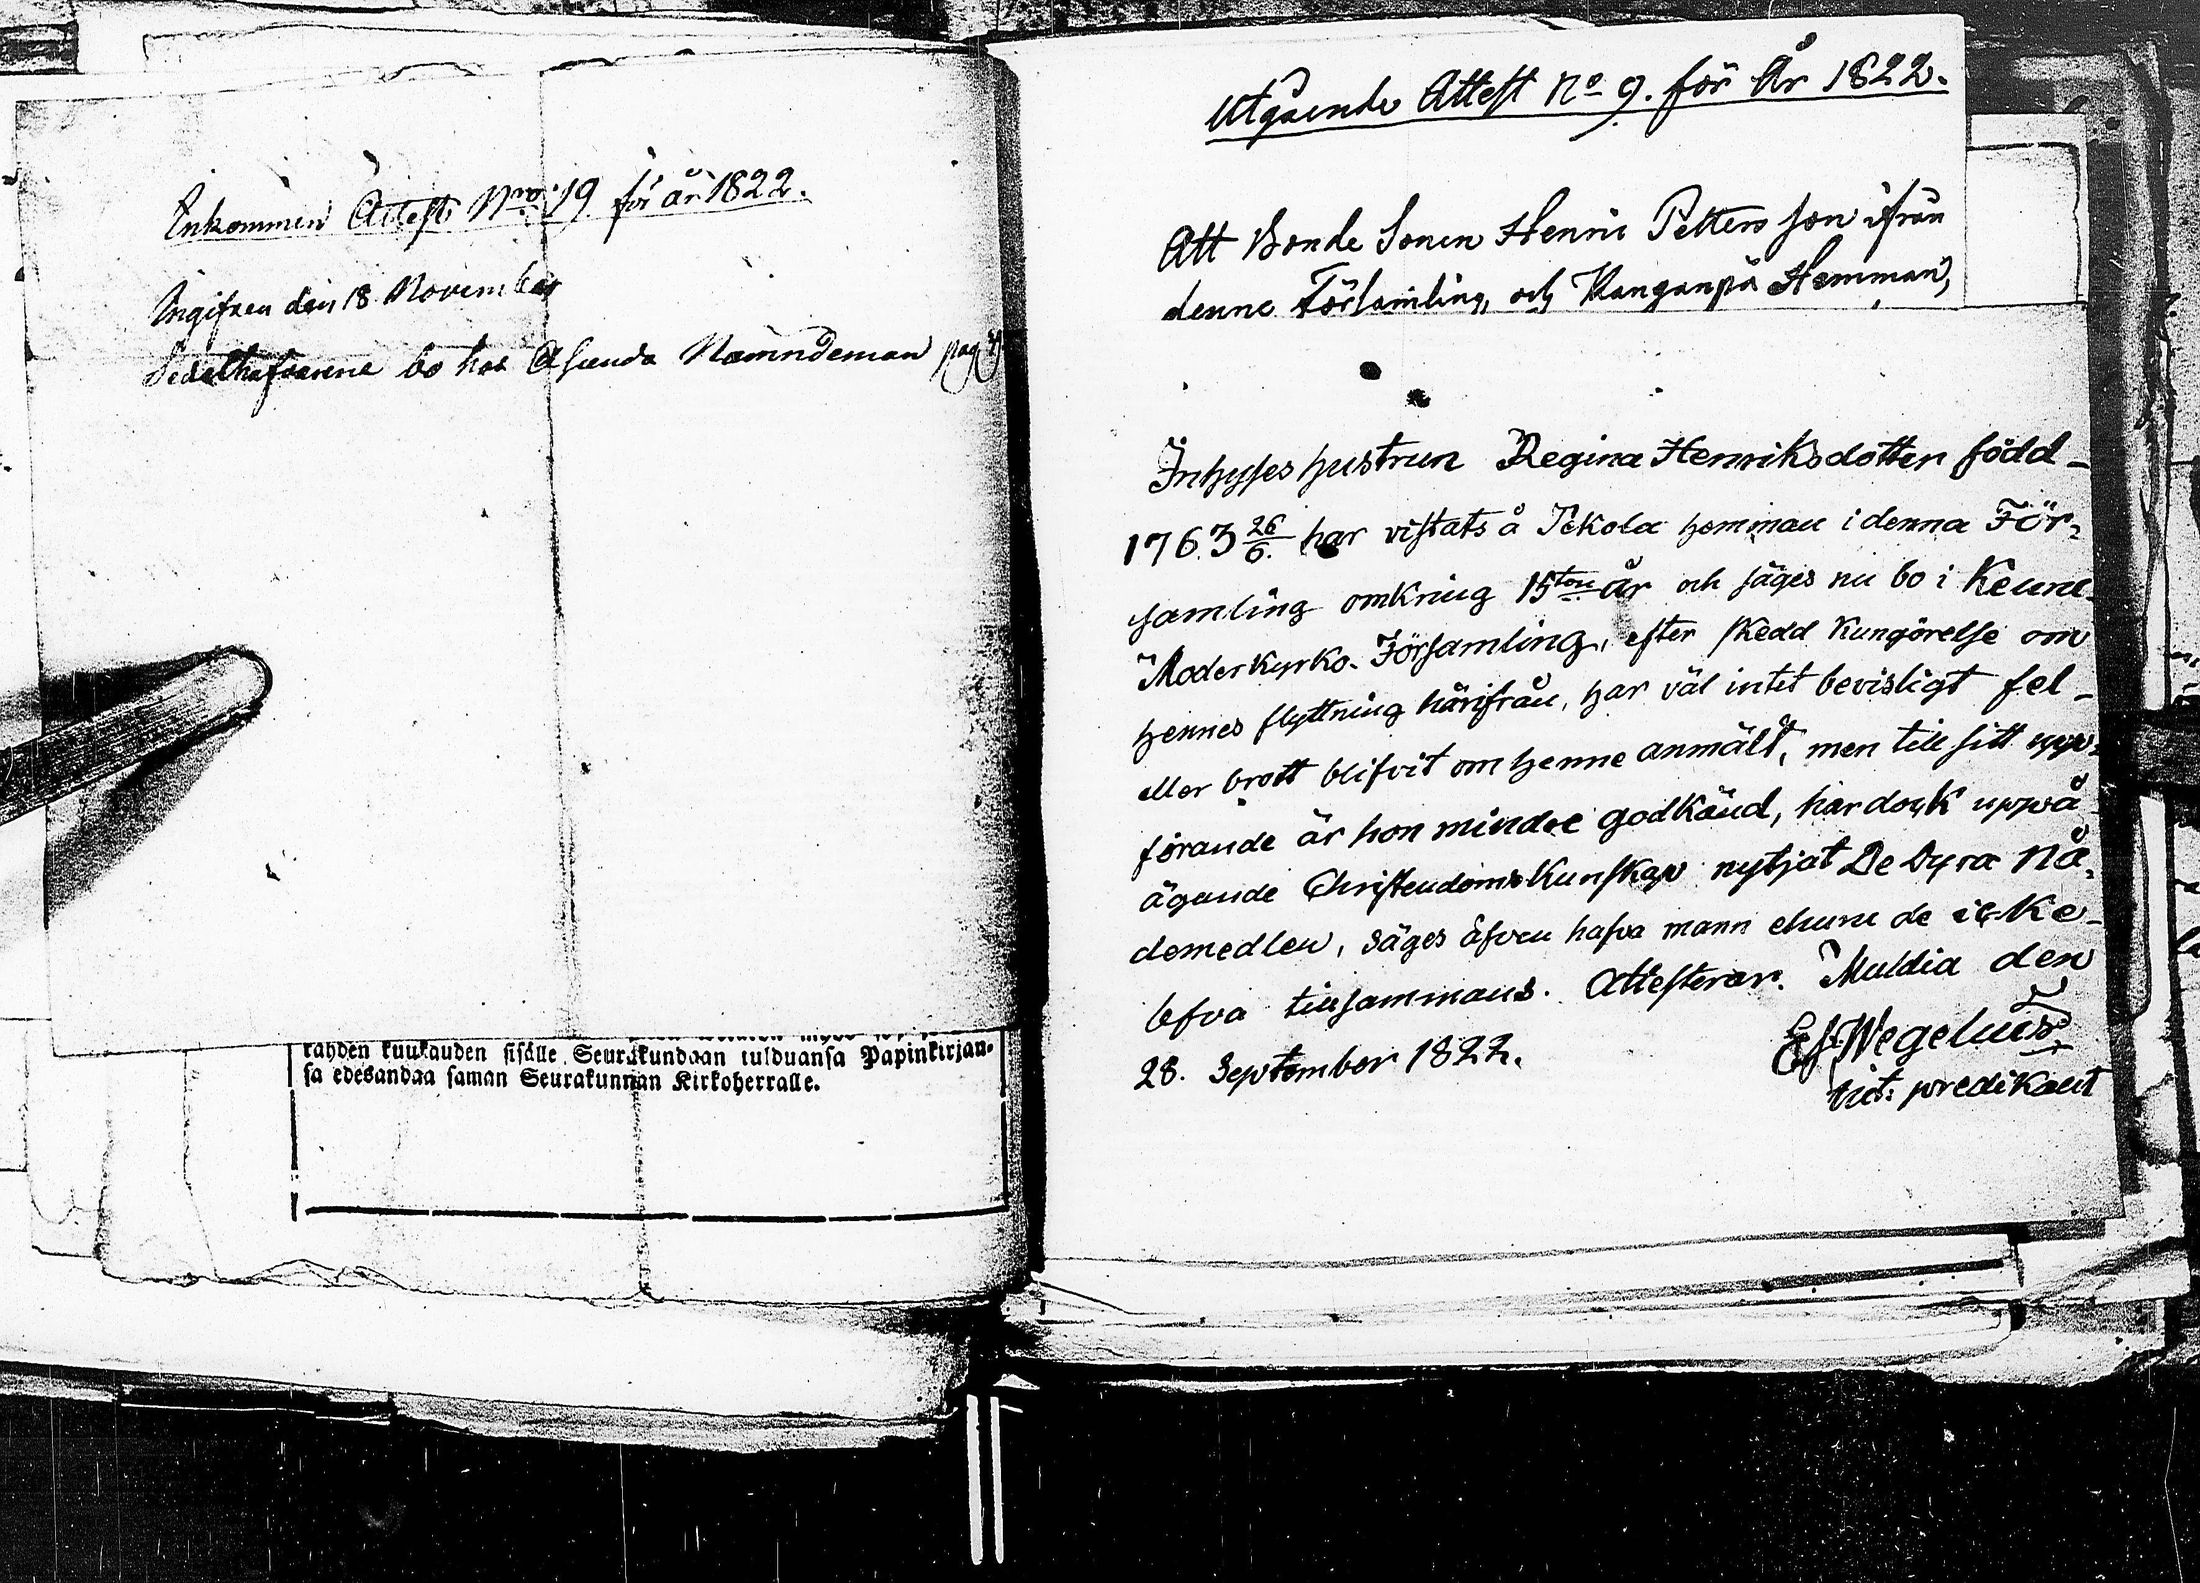 Inkommen Attest Nro 19 för år 1822.
Ingifven den 18 November
Sedelhafvarena bo hos Asunda Nämndeman pag
kahden kuukauden sisälle Seurakundaan tulduansa Papinkirjan-
sa edesandaa saman Seurakunnan Kirkoherralle.
Utgående Attest No 9. för År 1822.
Att Bonde Sonen Henric Pettersson ifrån
denne Församling, och Kanganpä Hemman,
Inhyses hustrun Regina Henriksdotter född
1763 26/6. har vistats å Pekola hemman i denna För-
samling omkring 15ton år och säges nu bo i Keuru
Moderkyrko-Församling, efter skedd kungörelse om
hennes flyttning härifrån, har väl intet bevisligt fel
eller brott blifvit om henne anmält, men till sitt upp-
förande är hon mindre godkänd, har dock uppå
ägande Christendomskunskap nytjat De Dyra Nå-
demedlen, säges äfven hafva mann ehuru de icke
lefva tillsammans. Attesterar. Muldia den
28. September 1822.
Ef Wegelius
Vict. predikant